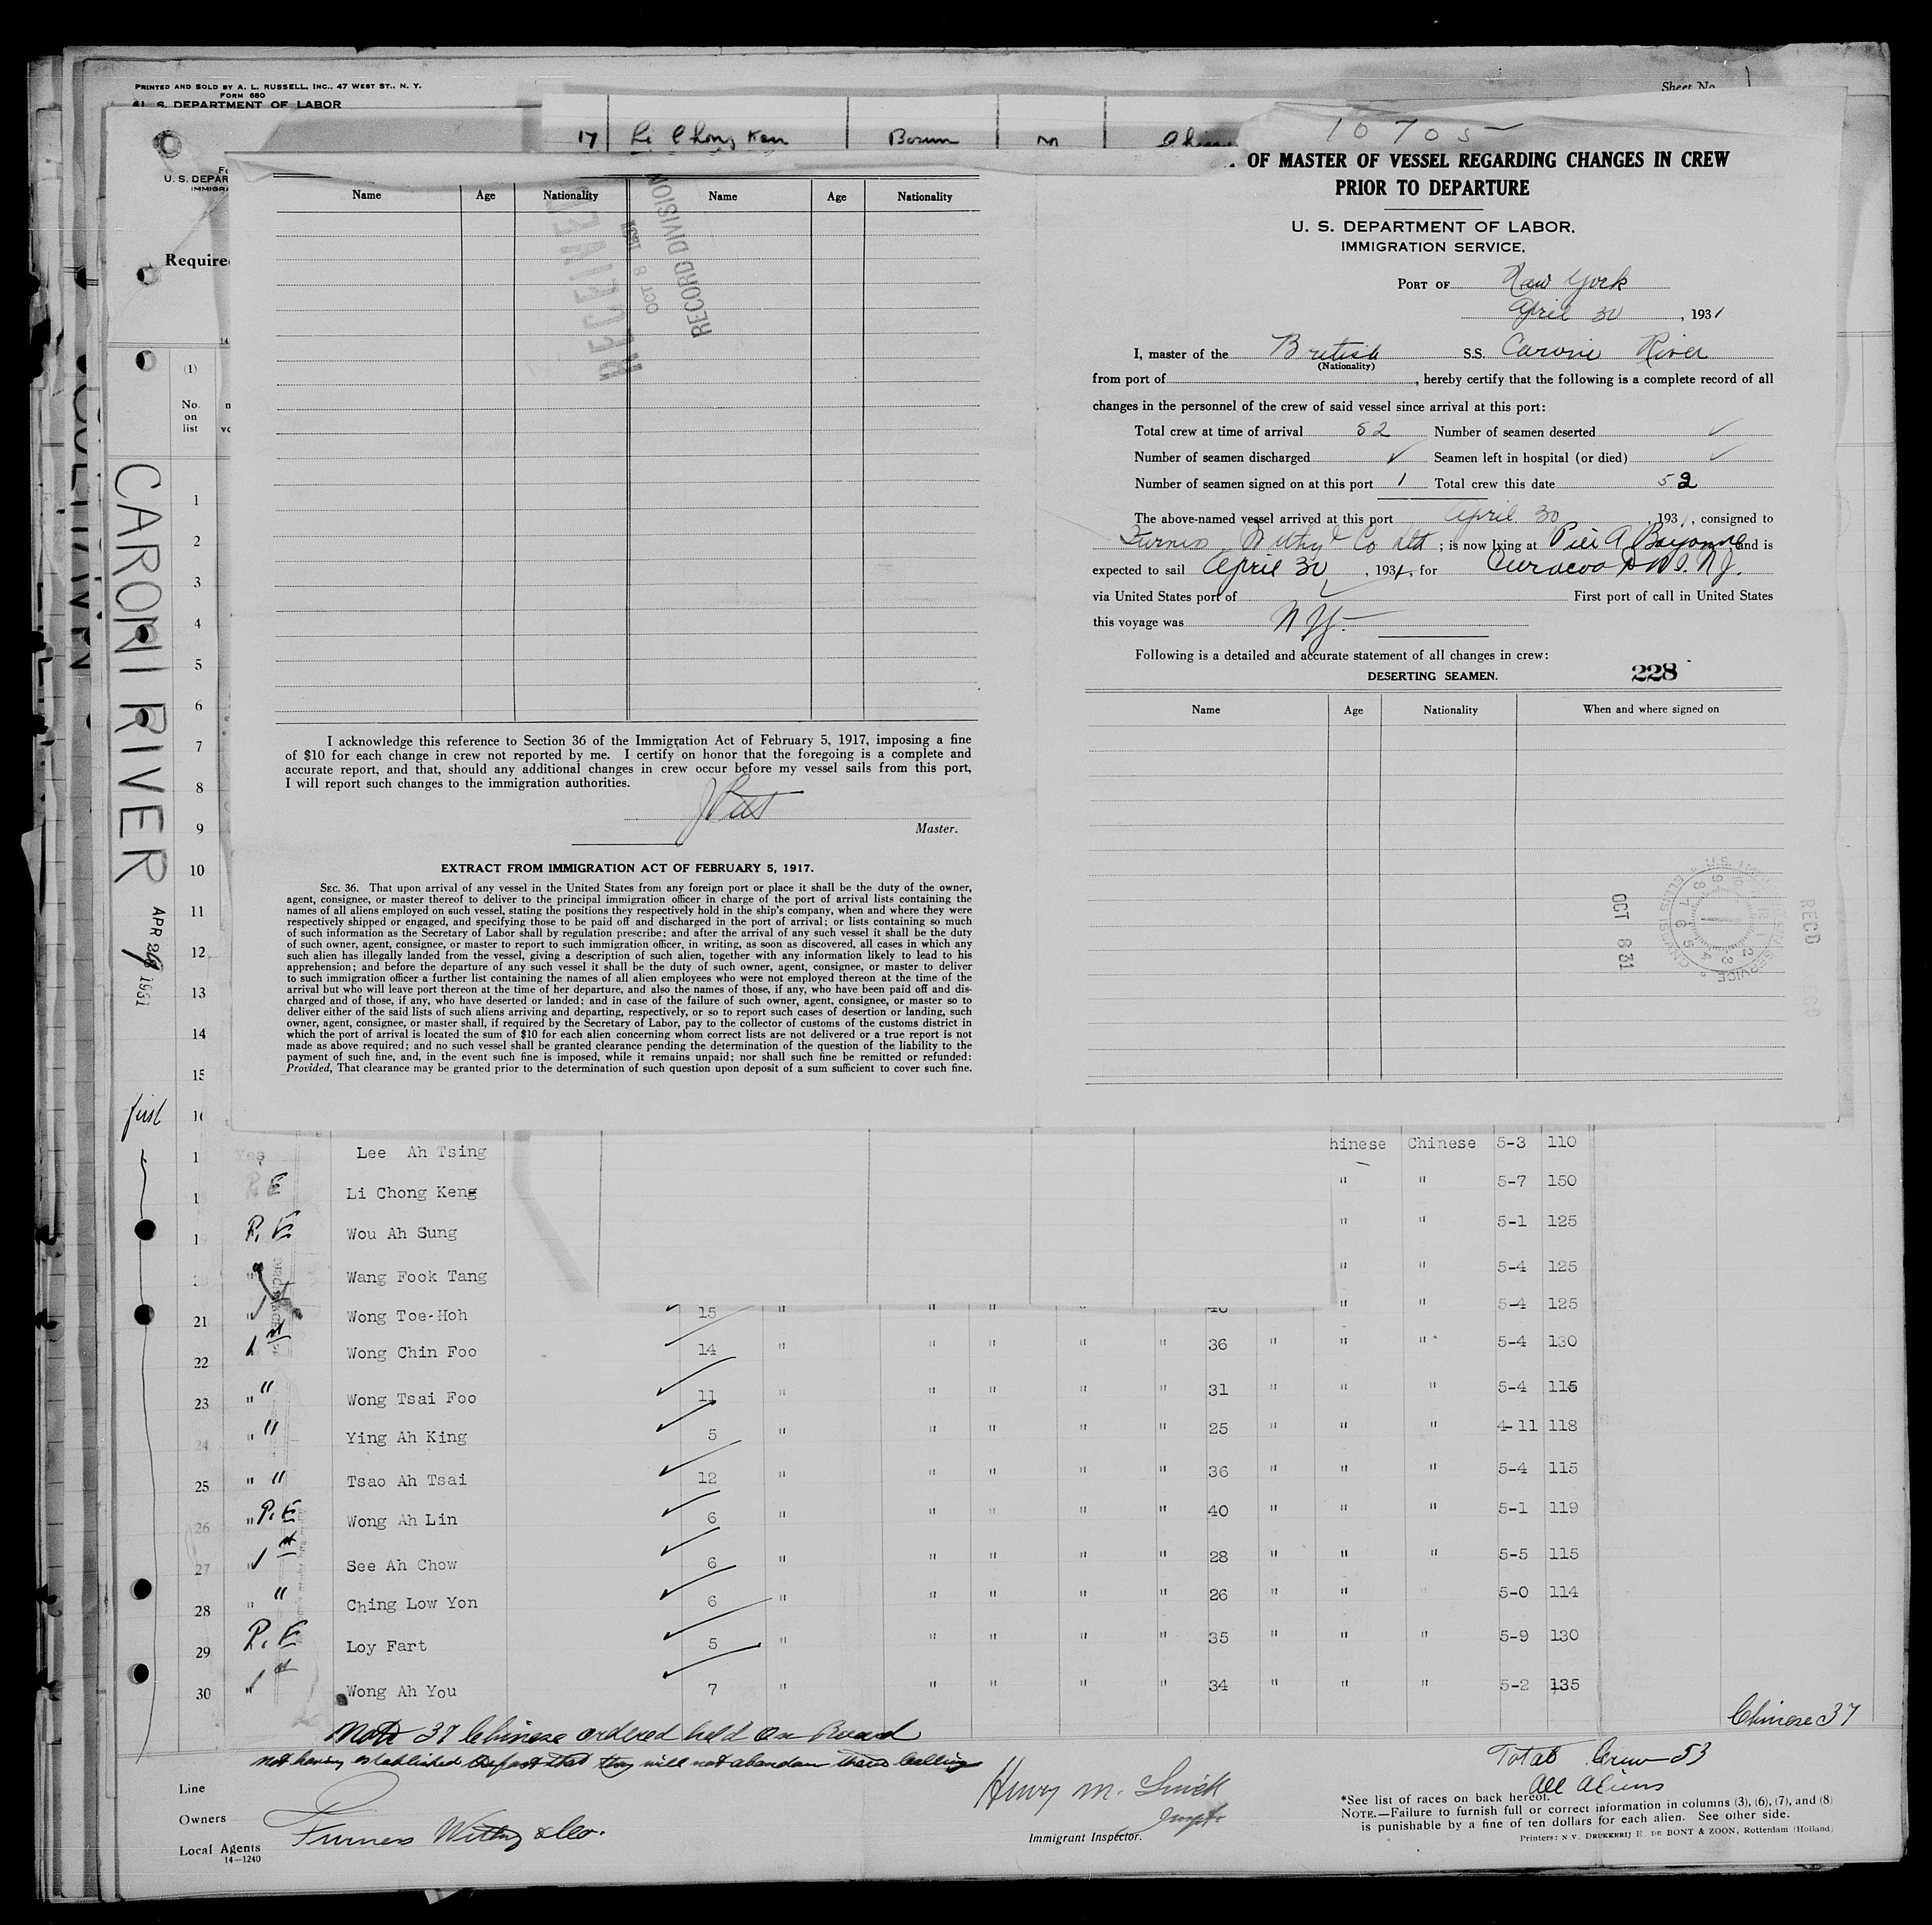 PRINTED AND SOLD BY A. L. RUSSELL, INC., 47 WEST ST., N. Y.
FORM 680
U. S. DEPARTMENT OF LABOR
Sheet No.
17 Li Chong Ken Bosun m
U. S. DEPAR
IMMIGRA
Require
(1)
No. on list
CARONI RIVER
APR 1931
first
Name Age Nationality Name Age Nationality
RECEIVED
OCT 8 1931
RECORD DIVISION
I acknowledge this reference to Section 36 of the Immigration Act of February 5, 1917, imposing a fine
of $10 for each change in crew not reported by me. I certify on honor that the foregoing is a complete and
accurate report, and that, should any additional changes in crew occur before my vessel sails from this port,
I will report such changes to the immigration authorities.
Master.
EXTRACT FROM IMMIGRATION ACT OF FEBRUARY 5, 1917.
SEC. 36. That upon arrival of any vessel in the United States from any foreign port or place it shall be the duty of the owner,
agent, consignee, or master thereof to deliver to the principal immigration officer in charge of the port of arrival lists containing the
names of all aliens employed on such vessel, stating the positions they respectively hold in the ship's company, when and where they were
respectively shipped or engaged, and specifying those to be paid off and discharged in the port of arrival; or lists containing so much
of such information as the Secretary of Labor shall by regulation prescribe; and after the arrival of any such vessel it shall be the duty
of such owner, agent, consignee, or master to report to such immigration officer, in writing, as soon as discovered, all cases in which any
such alien has illegally landed from the vessel, giving a description of such alien, together with any information likely to lead to his
apprehension; and before the departure of any such vessel it shall be the duty of such owner, agent, consignee, or master to deliver
to such immigration officer a further list containing the names of all alien employees who were not employed thereon at the time of the
arrival but who will leave port thereon at the time of her departure, and also the names of those, if any, who have been paid off and dis-
charged and of those, if any, who have deserted or landed; and in case of the failure of such owner, agent, consignee, or master so to
deliver either of the said lists of such aliens arriving and departing, respectively, or so to report such cases of desertion or landing, such
owner, agent, consignee, or master shall, if required by the Secretary of Labor, pay to the collector of customs of the customs district in
which the port of arrival is located the sum of $10 for each alien concerning whom correct lists are not delivered or a true report is not
made as above required; and no such vessel shall be granted clearance pending the determination of the question of the liability to the
payment of such fine, and, in the event such fine is imposed, while it remains unpaid; nor shall such fine be remitted or refunded:
Provided, That clearance may be granted prior to the determination of such question upon deposit of a sum sufficient to cover such fine.
10705
OF MASTER OF VESSEL REGARDING CHANGES IN CREW
PRIOR TO DEPARTURE
U. S. DEPARTMENT OF LABOR,
IMMIGRATION SERVICE,
PORT OF New York
April 30, 1931
I, master of the British S.S. Caroni River
(Nationality)
from port of , hereby certify that the following is a complete record of all
changes in the personnel of the crew of said vessel since arrival at this port:
Total crew at time of arrival 52 Number of seamen deserted ✓
Number of seamen discharged ✓ Seamen left in hospital (or died) ✓
Number of seamen signed on at this port 1 Total crew this date 52
The above-named vessel arrived at this port April 30, 1931, consigned to
Furness Withy & Co Ltd ; is now lying at Pier A Bayonne and is
expected to sail April 30, 1931, for Curacoa D.W.I. N.J.
via United States port of First port of call in United States
this voyage was N.Y.
Following is a detailed and accurate statement of all changes in crew:
228
DESERTING SEAMEN.
Name Age Nationality When and where signed on
OCT 8 31
RECD
1
2
3
4
5
6
7
8
9
10
11
12
13
14
15
Yes Lee Ah Tsing hinese Chinese 5-3 110
Li Chong Keng " " 5-7 150
P. E Wou Ah Sung " " 5-1 125
Wang Fook Tang " " 5-4 125
21 Wong Toe-Hoh 15 " " " " " " 5-4 125
22 1st Wong Chin Foo 14 " " " " " 36 " " " 5-4 130
23 " " Wong Tsai Foo 11 " " " " " 31 " " " 5-4 115
24 " " Ying Ah King 5 " " " " " 25 " " " 4-11 118
25 " " Tsao Ah Tsai 12 " " " " " 36 " " " 5-4 115
26 " P. E Wong Ah Lin 6 " " " " " 40 " " " 5-1 119
27 1st See Ah Chow 6 " " " " " 28 " " " 5-5 115
28 " " Ching Low Yon 6 " " " " " 26 " " " 5-0 114
29 P. E Loy Fart 5 " " " " " 35 " " " 5-9 130
30 1st Wong Ah You 7 " " " " 34 " " " 5-2 135
Note 37 Chinese ordered held on Board
not having established the fact that they will not abandon their calling
Chinese 37
Total Crew 53
All Aliens
Line
Owners
Local Agents Furness Withy & Co.
14—1240
Henry M.
Immigrant Inspector.
*See list of races on back hereof.
NOTE.—Failure to furnish full or correct information in columns (3), (6), (7), and (8)
is punishable by a fine of ten dollars for each alien. See other side.
Printers: N.V. DRUKKERIJ E. DE BONT & ZOON, Rotterdam (Holland)